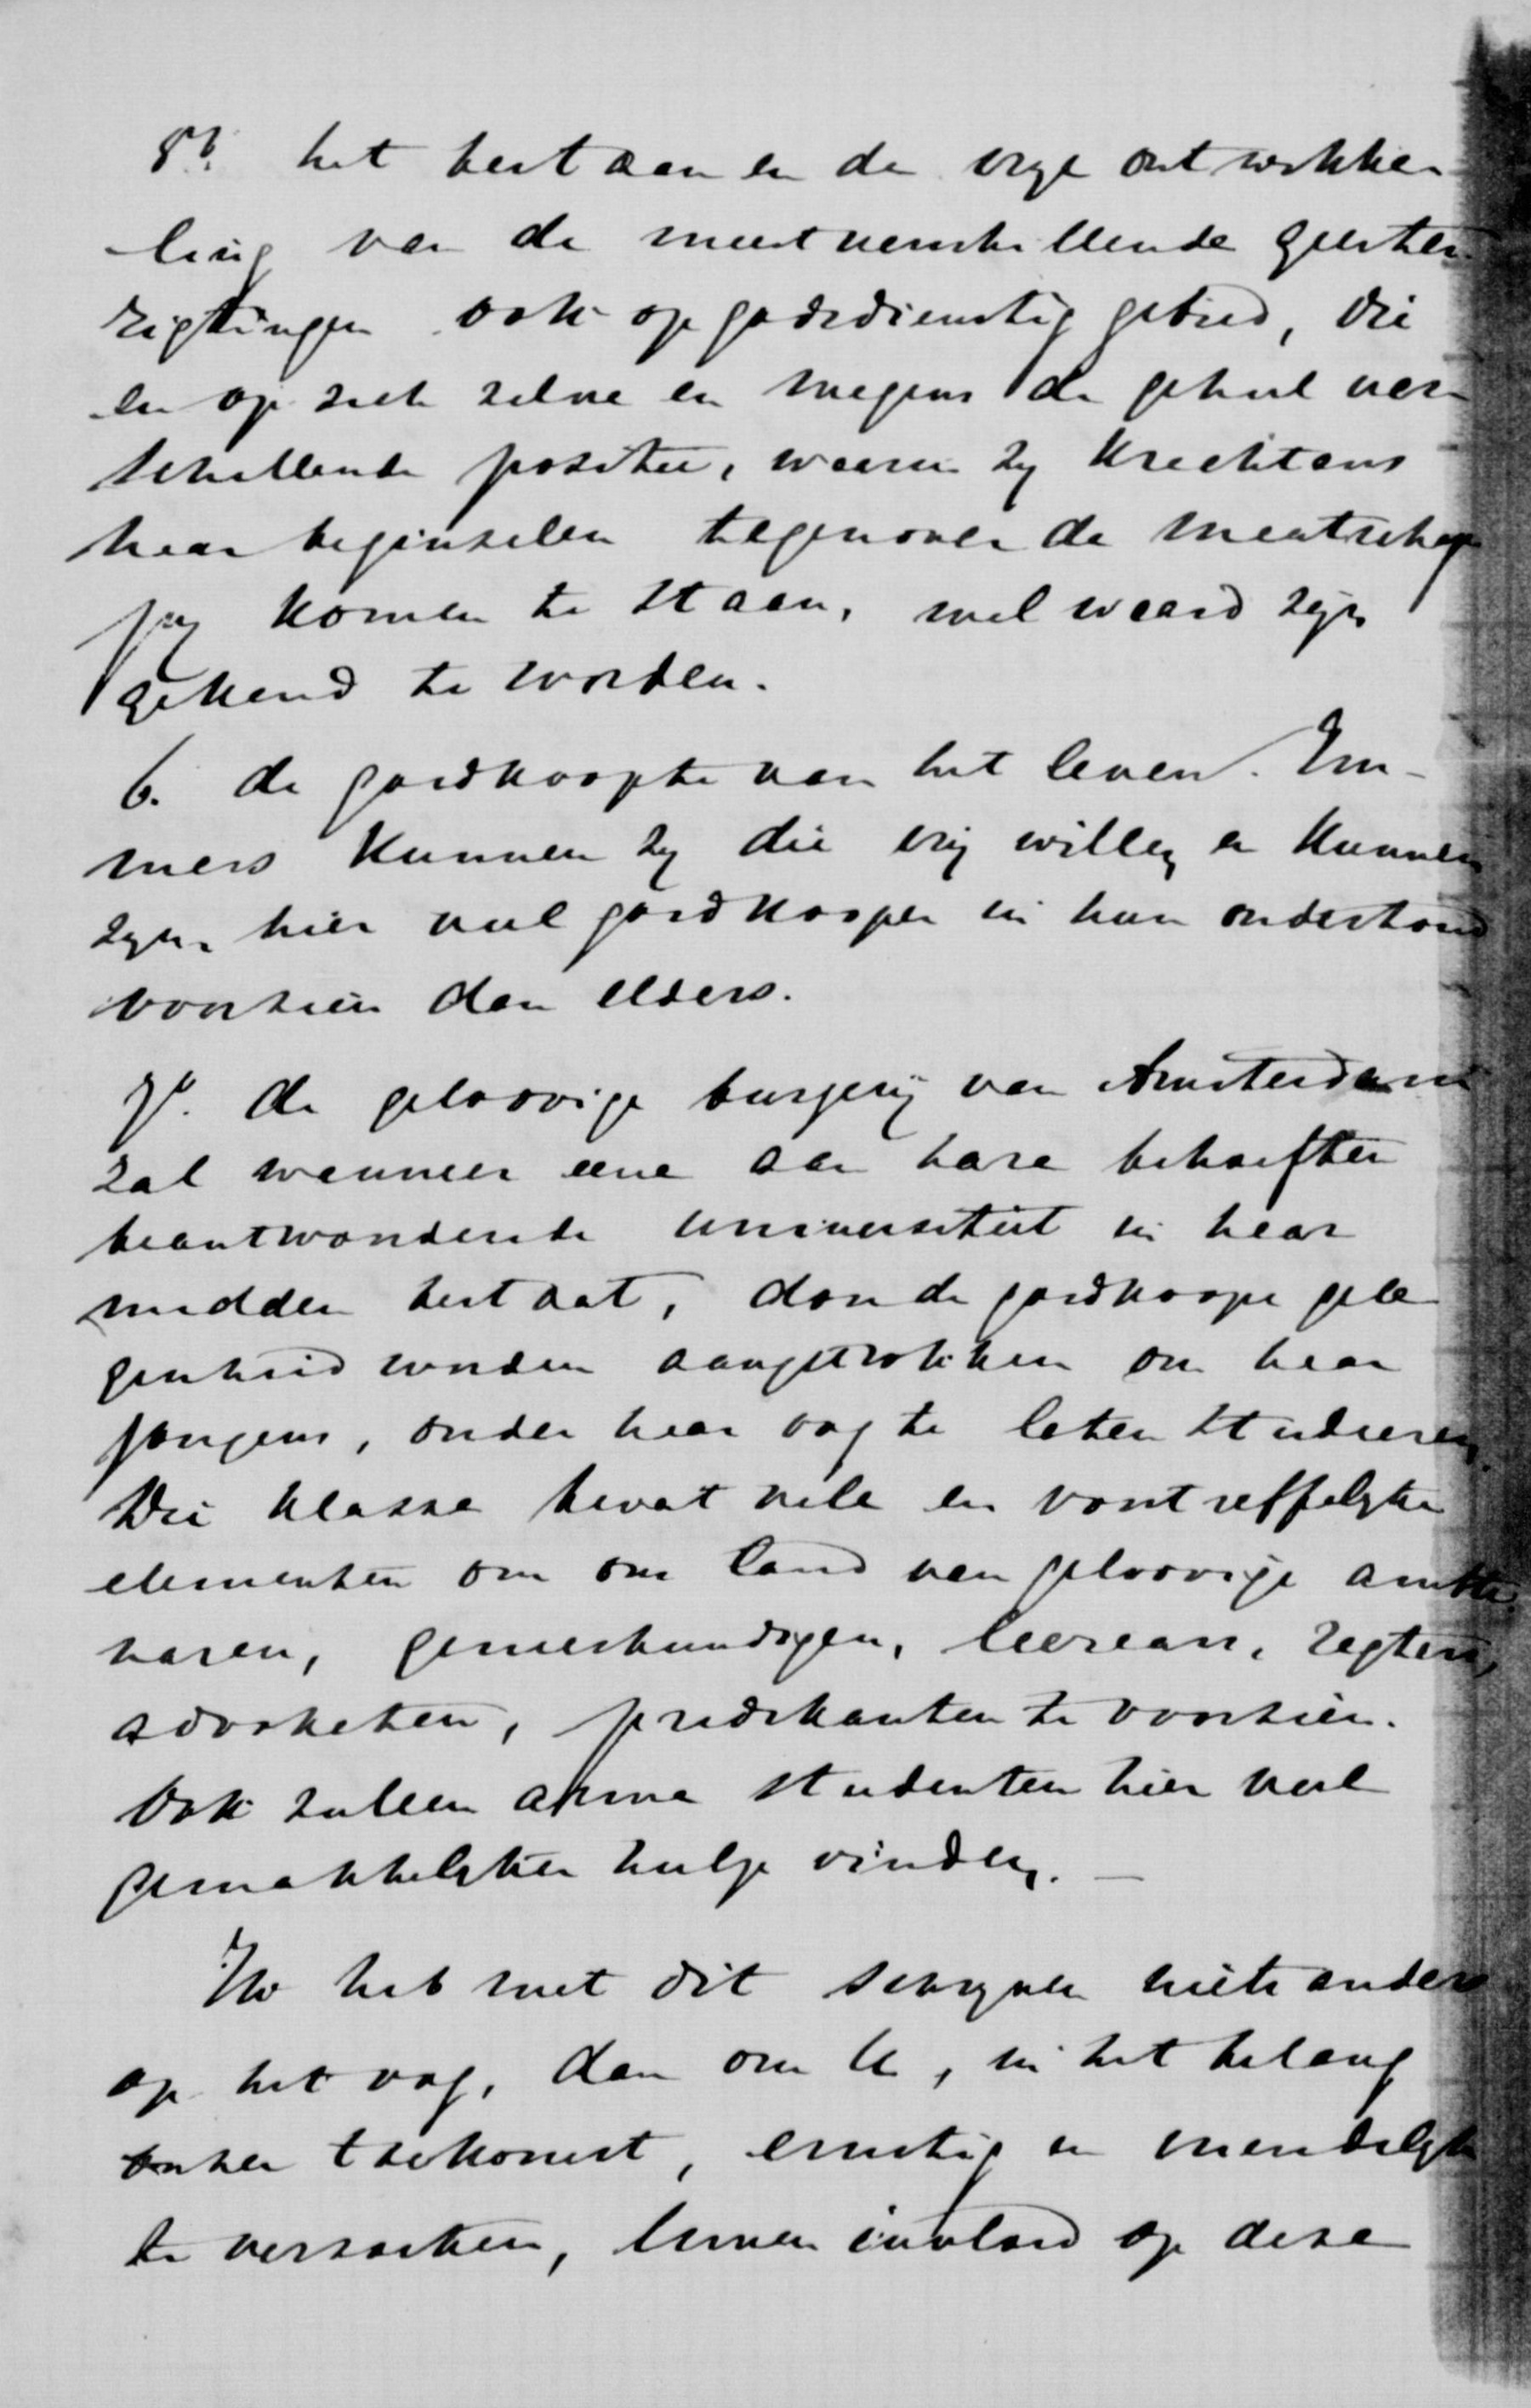 5o. het bestaan en de vrye ontwikke-
ling van de meest verschillende geestes-
rigtingen ook op godsdienstig gebied, die
en op zich zelve en wegens de geheel ver-
schillende positie, waarin zy krachtens
haar beginselen tegenover de maatschap-
py komen te staan, wel waard zyn
gekend te worden.
6. de goedkoopte van het leven. Im-
mers kunnen zy die vrij willen en kunnen
zyn, hier veel goedkooper in hun onderhoud
voorzien dan elders.
7o. de geloovige burgerij van Amsterdam
zal wanneer eene aan hare behoeften
beantwoordende universiteit in haar
midden bestaat, door de goedkoope gele-
genheid worden aangetrokken om haar
jongens, onder haar oog te laten studeren.
Die klasse bevat vele en voortreffelyke
elementen om ons land van geloovige ambte-
naren, geneeskundigen, leeraars, regters,
advokaten, predikanten te voorzien.
Ook zullen arme studenten hier veel
gemakkelyker hulp vinden. —
Ik heb met dit schryven niets anders
op het oog, dan om U, in het belang
onzer toekomst, ernstig en vriendelyk
te verzoeken, Uwen invloed op deze